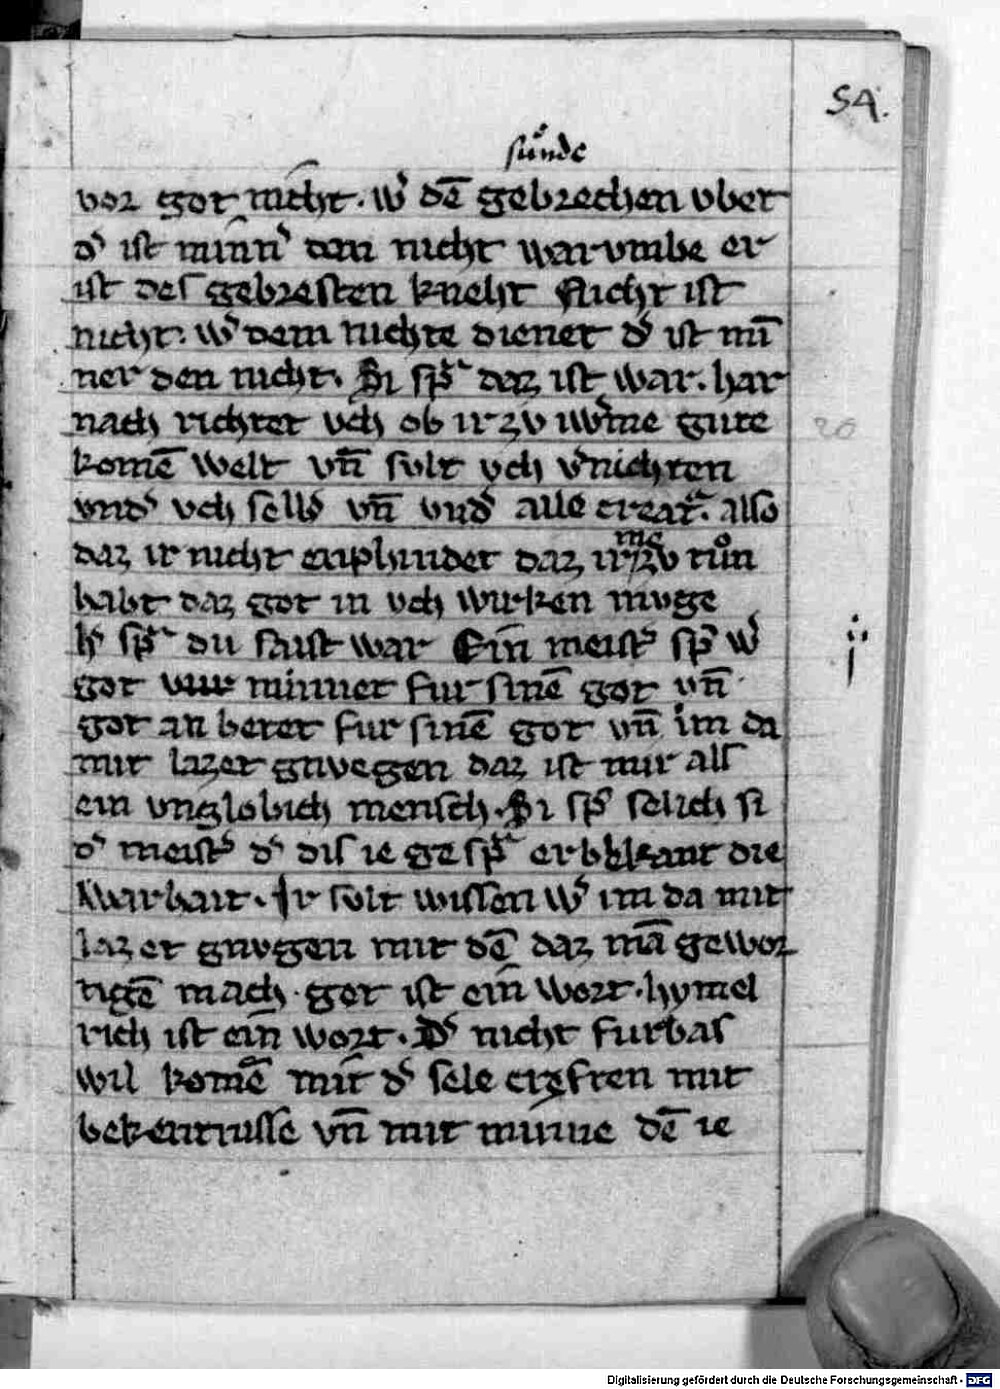 54.
sünde
vor got nicht. w᾽ dē gebrechen vber
d᾽ ist minn᾽ den nicht warvmbe er
ist des gebresten kneht Nicht ist
nicht. w᾽ dem nichte dienet d᾽ ist mī
ner den nicht. Si sp᾽ch daz ist war. har
nach richtet vch ob ir zv uw᾽me gute
komē welt vn̄ sult vch v᾽nichten
vnd᾽ vch selb᾽ vn̄ vnd᾽ alle creat᾽. also
daz ir nicht enphindet daz ir me zv tůn
habt daz got in vch wirken mvge
h᾽ sp᾽ch du saist war Ein meist᾽ sp᾽ w᾽
got minnet fur sinē got vn̄
got an betet fur sinē got vn̄ im da
mit lazet gnvegen daz ist mir als
ein vnglobich mensch. Si sp᾽ selich si
d᾽ meist᾽ d᾽ dis ie gesp᾽ch er bekant die
warhait. Ir sult wissen w᾽ im da mit
lazet gnvgen mit dē daz mā gewor
tigē mach. got ist ein wort. hymel
rich ist ein wort. D᾽ nicht furbas
wil komē mit d᾽ sele creften mit
bekentnisse vn̄ mit minne dē ie
20
Digitalisierung gefördert durch die Deutsche Forschungsgemeinschaft - DFG